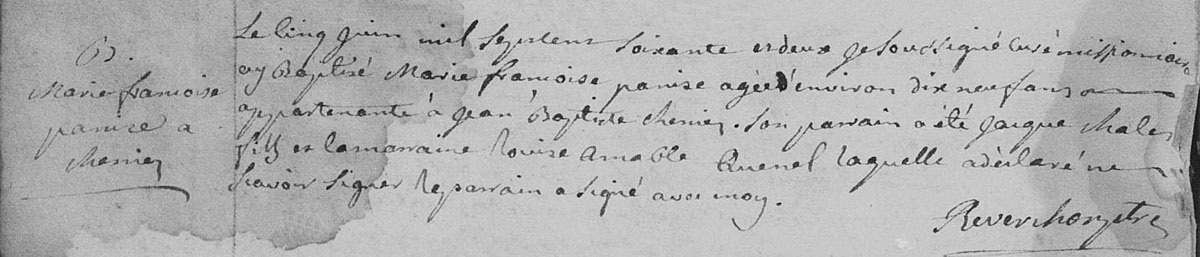 B.
Marie francoise
panise a
chenier
Le cinq Juin mil Sept cent soixante et deux Je soussigné Curé missionnaire
ay Baptisé Marie francoise panise agée d'environ dix neuf ans
appartenante à Jean Baptiste chenier. Son parrain a été Jacque chales
fils et la marraine Louise Amable Quenel Laquelle a déclaré ne
scavoir signer Le parrain a signé avec moy.
Reverchon ptre